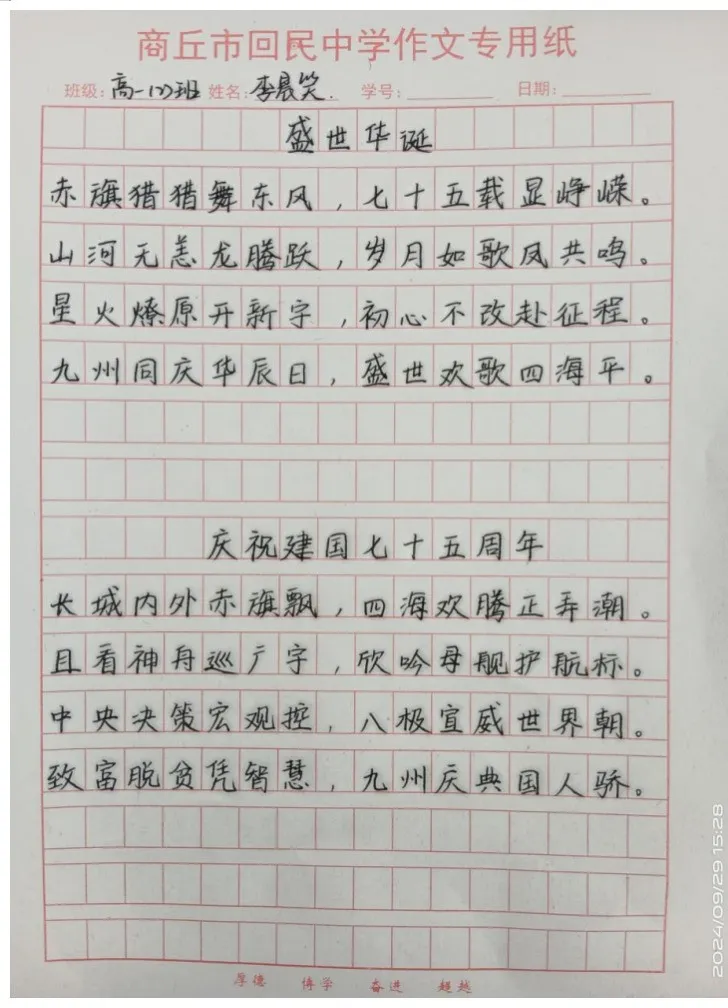 商丘市回民中学作文专用纸
班级：高一(7)班 姓名：李晨笑. 学号： 日期：
盛世华诞
赤旗猎猎舞东风，七十五载显峥嵘。
山河无恙龙腾跃，岁月如歌凤共鸣。
星火燎原开新宇，初心不改赴征程。
九州同庆华辰日，盛世欢歌四海平。
庆祝建国七十五周年
长城内外赤旗飘，四海欢腾正弄潮。
且看神舟巡广宇，欣吟母舰护航标。
中央决策宏观控，八极宣威世界朝。
致富脱贫凭智慧，九州庆典国人骄。
厚德 博学 奋进 超越
2024/09/29 15:28